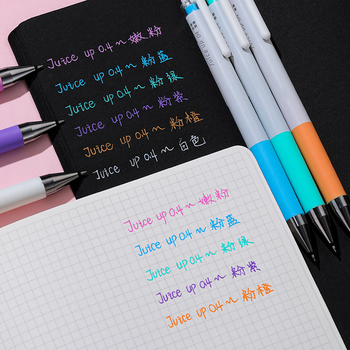 Juice up 0.4 ~ 嫩粉
Juice up 0.4 ~ 粉蓝
Juice up 0.4 ~ 粉绿
Juice up 0.4 ~ 粉紫
Juice up 0.4 ~ 粉橙
Juice up 0.4 ~ 白色
Juice up 0.4 ~ 嫩粉
Juice up 0.4 ~ 粉蓝
Juice up 0.4 ~ 粉绿
Juice up 0.4 ~ 粉紫
Juice up 0.4 ~ 粉橙